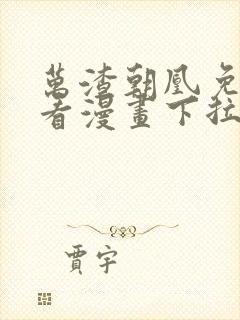 萬渣朝凰免
看漫畫下拉
賈宇